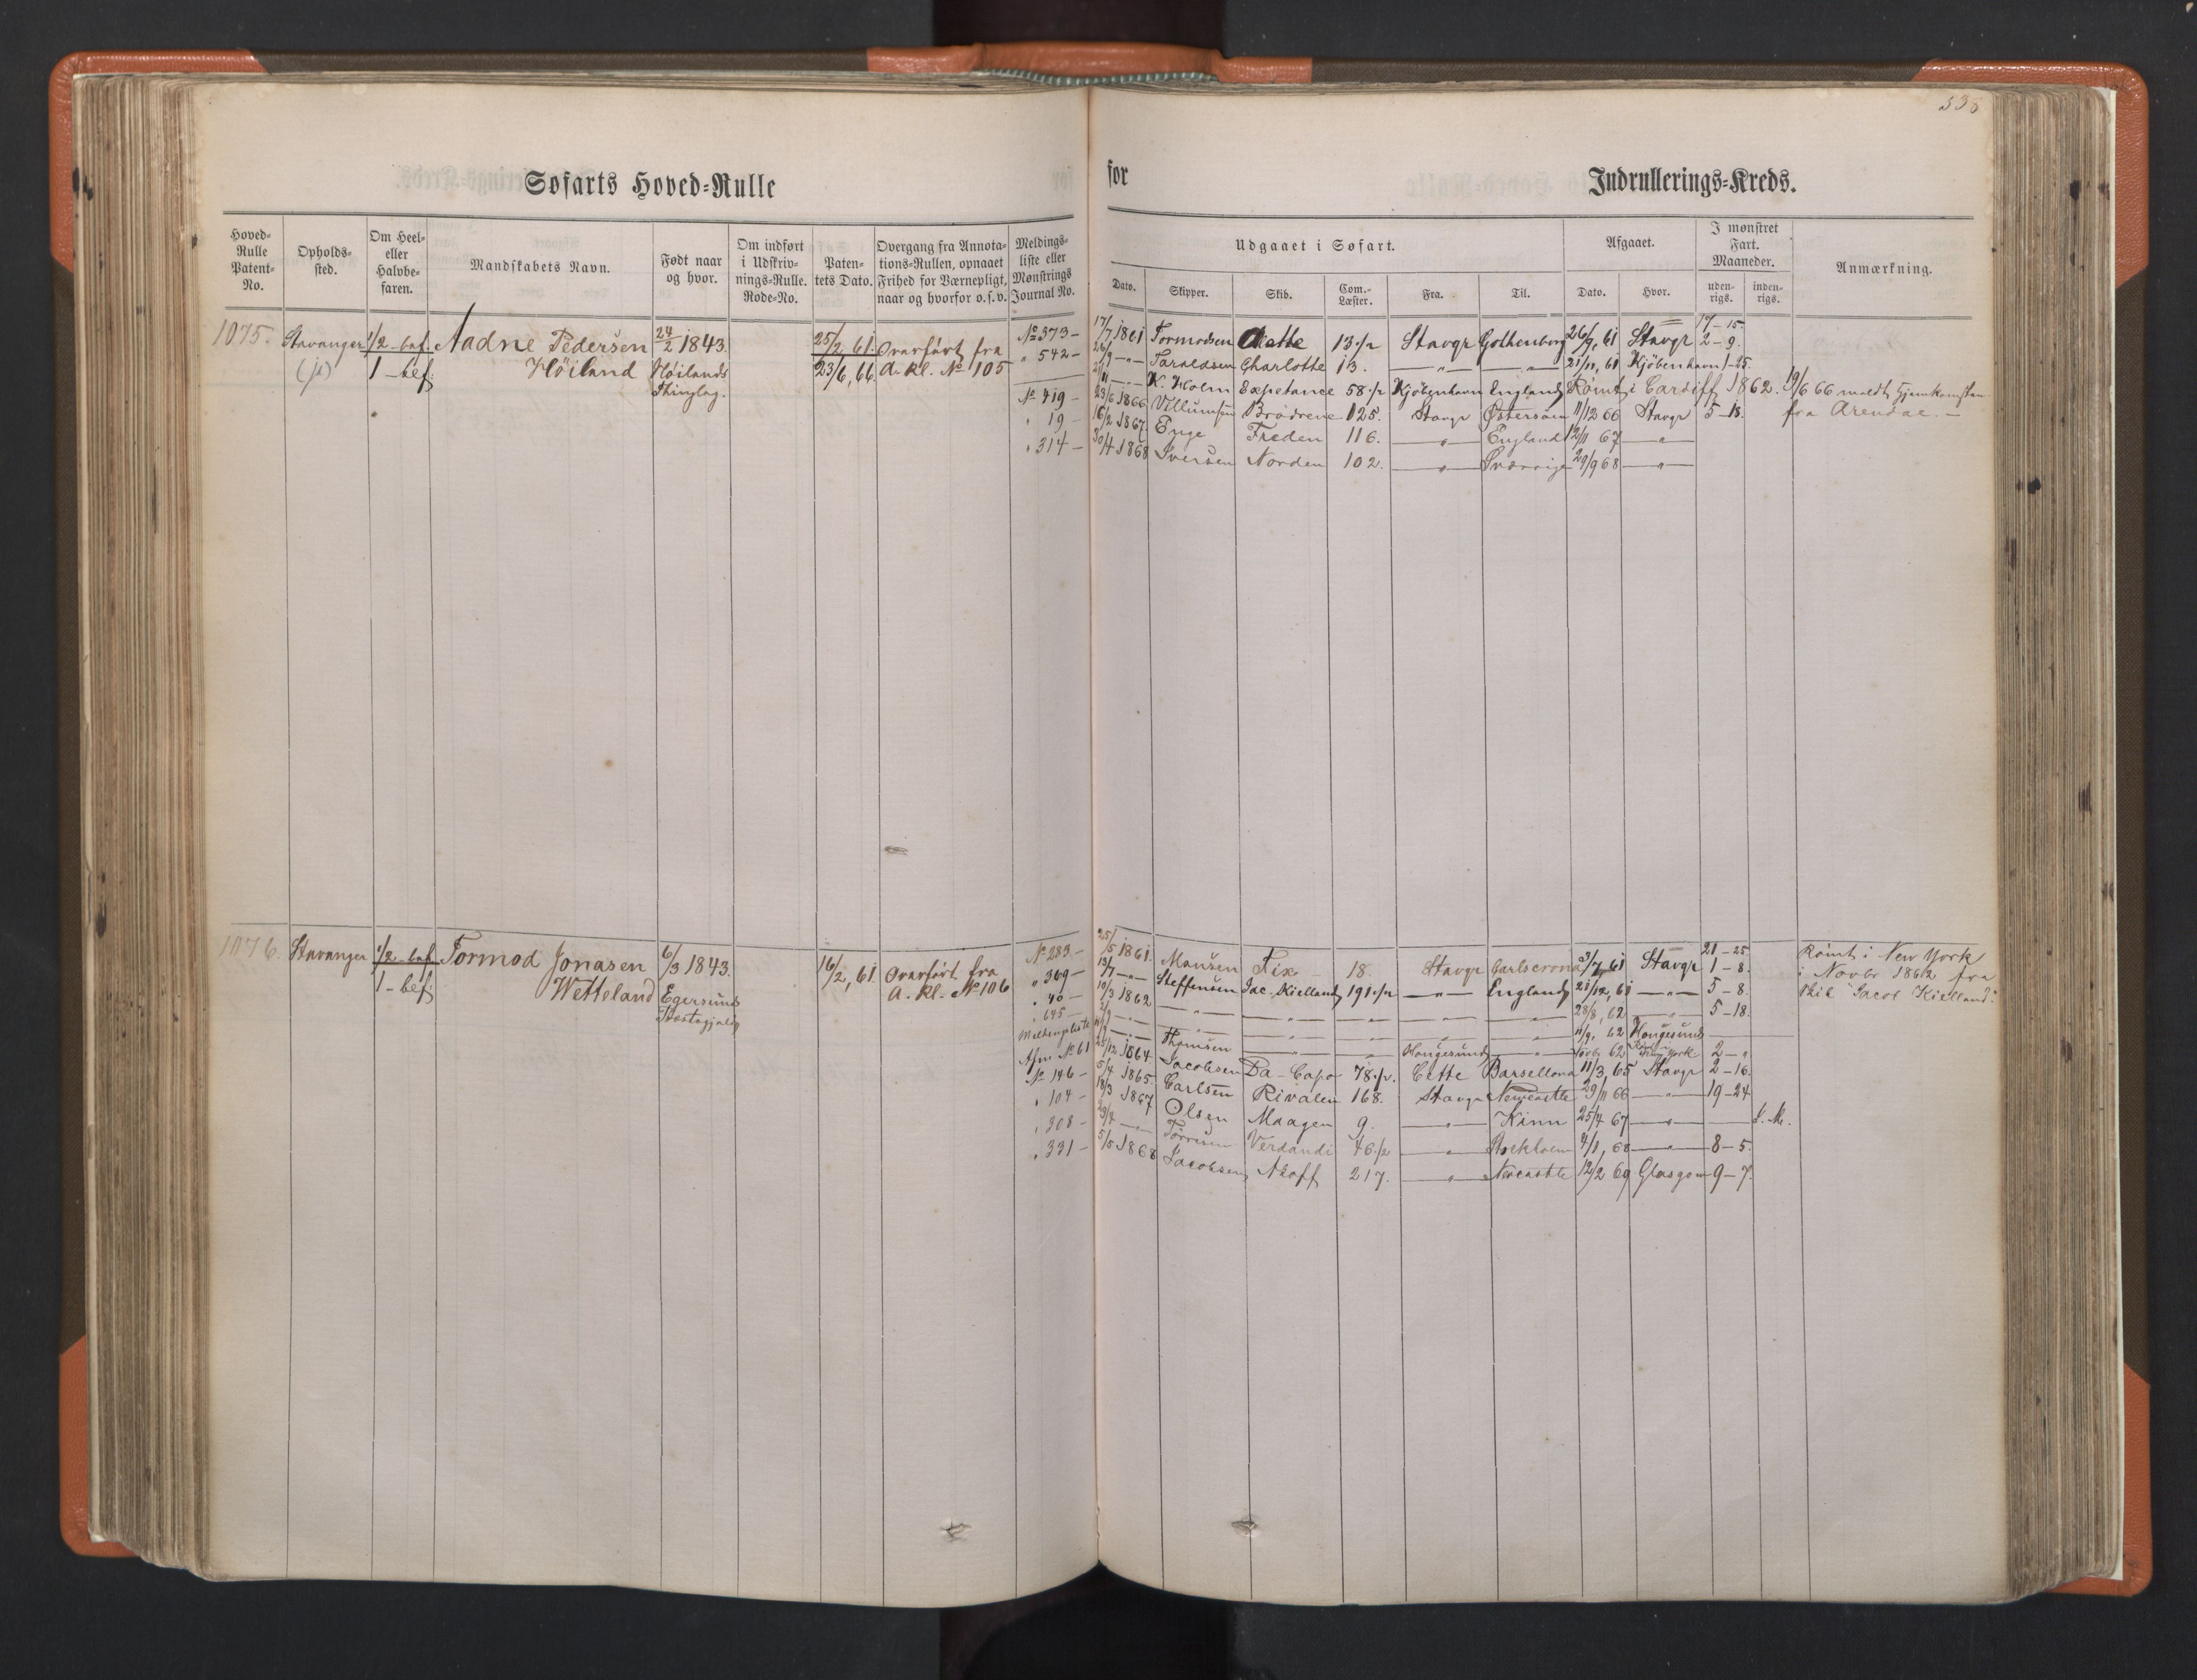 538
Søfarts Hoved-Rulle
for
Indrullerings-Kreds.
Hoved-Rulle Patent-No.
Opholds-sted.
Om Heel- eller Halvbe-faren.
Mandskabets Navn.
Født naar og hvor.
Om indført i Udskriv-nings-Rulle. Rode-No.
Paten-tets Dato.
Overgang fra Annota-tions-Rullen, opnaaet Frihed for Værnepligt, naar og hvorfor o. s. v.
Meldings-liste eller Mønstrings Journal No.
Udgaaet i Søfart.
Dato.
Skipper.
Skib.
Com.-Læster.
Fra.
Til.
Afgaaet.
Dato.
Hvor.
I mønstret Fart. Maaneder.
uden-rigs.
inden-rigs.
Anmærkning.
1075. Stavanger 1/2-bef. Aadne Pedersen 24/2 1843. 25/2, 61. Overført fra
1-bef. Höiland Höilands 23/6, 66. A. Rl. No 105
Thinglag.
17-15.
No 373 - 17/7 1861 Tormodsen Mette 13 1/2 Stavgr Gothenborg 26/9, 61 Stavgr 2-9.
" 542 - 26/9 -"- Taraldsen Charlotte 13. -"- -"- 21/11, 61 Kjöbenhavn 1-25.
21/11 -"- K. Holm Expetance 58 1/2 Kjöbenhavn England Römt i Cardiff 1862. 19/6 66 meldt Hjemkomsten
No 419 - 23/6 1866 Villumsen Brödrene 125. Stavgr Østersöen 11/12 66 Stavgr 5-18. fra Arendal. -
" 19 - 16/2 1867 Enge Freden 116. -"- England 12/11 67 -"-
" 314 - 30/4 1868 Iversen Norden 102. -"- Sverrige 29/9 68 -"-
1076. Stavanger 1/2-bef. Tormod Jonasen 6/3 1843. 16/2, 61 Overført fra
1-bef. Wetteland Egersunds A. Rl. No 106
Præstegjæld
21-25
No 283 - 25/5 1861. Mausen Fix 18. Stavgr Carlscrona 3/7, 61 Stavgr 1-8. Römt i New York
" 369 - 13/7 -"- Steffensen Jac. Kielland 191 1/2 -"- England 21/12, 61 -"- 5-8. i Novbr 1862 fra
" 40 - 10/3 1862 -"- -"- -"- -"- -"- 28/8, 62 -"- 5-18. Skib "Jacob Kielland".
" 645 - -"- -"- -"- -"- -"- -"- 11/9, 62 Hougesund
Meldingsliste -"- Thomsen -"- -"- Hougesund -"- Novbr 62 New York 2-"
Afm No 61 1864 Jacobsen Da-Capo 78 1/2. Cette Barsellona 11/3, 65 Stavgr 2-16.
No 146 - 5/4 1865. Carlsen Rivalen 168. Stavgr Newcastle 29/11 66 -"- 19-24
" 104 - 18/3 1867 Olsen Maagen 9. -"- Kinn 25/4 67 -"-
" 308 - 29/4 -"- Törresen Verdandi 46 1/2 -"- Stockholm 4/1, 68 -"- 8-5.
" 331 - 5/5 1868 Jacobsen 217. -"- Newcastle 12/2 69 Glasgow 9-7.